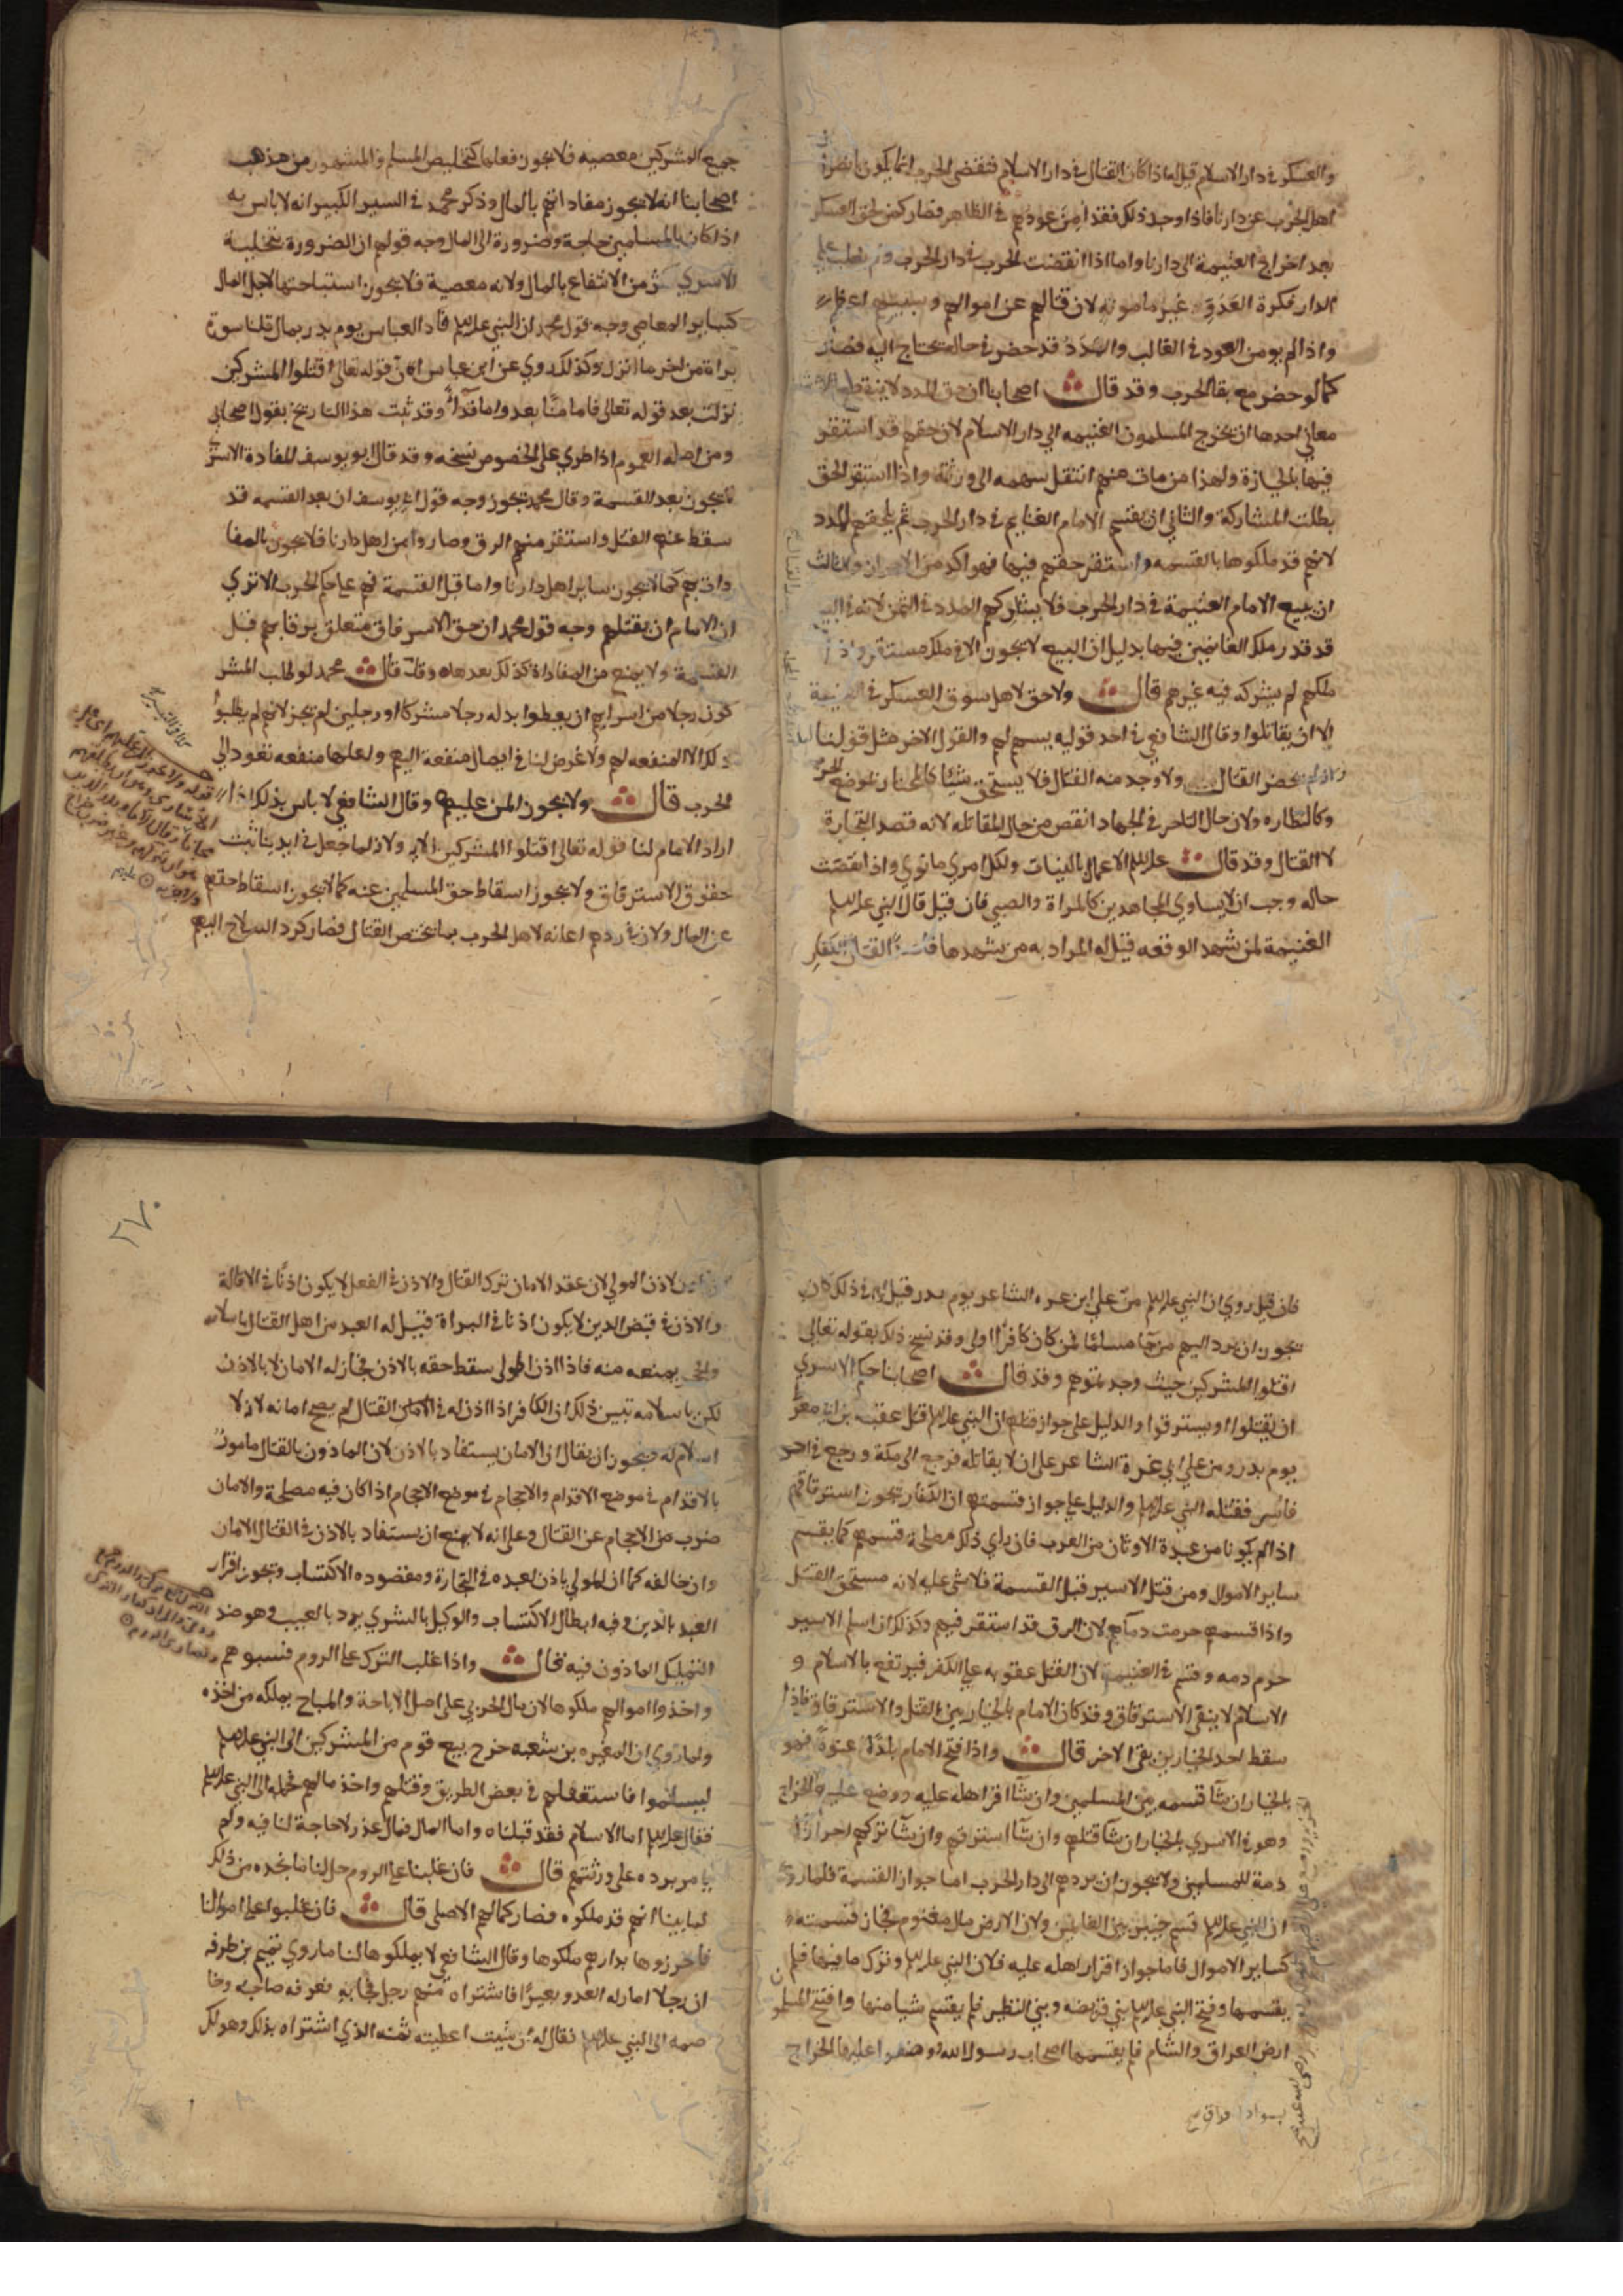 والعسكر في دار الاسلام قيل له اذا كان القتال في دار الاسلام فتقضى الحرب انما يكون بانصرا
اهل الحرب عن دارنا فاذا وجد ذلك فقد امن عودهم في الظاهر فصار كمن لحق العسكر
بعد اخراج الغنيمة الى دارنا واما اذا انقضت الحرب في دار الحرب ولم نغلب على
الدار فكرة العدو غير مامونه لان قتالهم عن اموالهم وسبيهم
واذا لم يومن العود في الغالب والمدد قد حضر في حالة يحتاج اليه فصار
كما لو حضر مع بقا الحرب وقد قال اصحابنا ان حق المدد لا ينقطع الا
معاني احدها ان يخرج المسلمون الغنيمه الى دار الاسلام لان حقهم قد استقر
فيها بالحيازة ولهذا من مات منهم انتقل سهمه الى ورثته واذا استقر الحق
بطلت المشاركة والثاني ان يقسم الامام الغنايم في دار الحرب ثم يلحقهم المدد
لانهم قد ملكوها بالقسمه واستقر حقهم فيها فهو اكد من الاحراز والثالث
ان يبيع الامام الغنيمة في دار الحرب فلا يشاركهم المدد في الثمن لانه في البيع
قد قدر ملك الغانمين فيها بدليل ان البيع لا يجوز الا في ملك مستقر واذا
ملكهم لم يشركه فيه غيرهم قال ولا حق لاهل سوق العسكر في الغنيمة
الا ان يقاتلوا وقال الشافعي في احد قوليه يسهم لهم والقول الاخر مثل قولنا لنا
انه لم يحضر القتال ولا وجد منه القتال فلا يستحق شيئا كالمجتاز بموضع الحرب
وكالنظاره ولان حال التاجر في الجهاد انقص من حال المقاتله لانه قصد التجارة
لا القتال وقد قال عليه السلم الاعمال بالنيات ولكل امري ما نوي واذا نقصت
حاله وجب ان لا يساوي المجاهدين كالمراة والصبي فان قيل قال النبي عليه السلم
الغنيمة لمن شهد الوقعه قيل له المراد به من يشهدها
جميع المشركين معصيه فلا يجوز فعلها كتخليص المسلم والمشهور من مذهب
اصحابنا انه لا يجوز مفاداتهم بالمال وذكر محمد في السير الكبير انه لا باس به
اذا كان بالمسلمين حاجة وضرورة الى المال وجه قولهم ان الضرورة بتخلية
الاسري اكثر من الانتفاع بالمال ولانه معصية فلا يجوز استباحتها لاجل المال
كساير المعاصي وجه قول محمد ان النبي عليه السلم فاد العباس يوم بدر بمال قلنا سورة
براة من اخر ما انزل وكذلك روي عن ابن عباس ان قوله تعالى اقتلوا المشركين
نزلت بعد قوله تعالى فاما منا بعد واما فداء وقد ثبت هذا التاريخ بقول اصحابي
ومن اصله العموم اذا طري على الخصوص نسخه وقد قال ابو يوسف المفادة الاسرى
لا يجوز بعد القسمة وقال محمد تجوز وجه قول ابي يوسف ان بعد القسمه قد
سقط عنهم القتل واستقر منهم الرق وصاروا من اهل دارنا فلا يجوز المفا
داة بهم كما لا يجوز ساير اهل دارنا واما قبل القسمة فهم على حكم الحرب الا تري
ان للامام ان يقتلهم وجه قول محمد ان حق الاسترقاق متعلق برقابهم قبل
القسمة ولا يمنع من المفاداة كذلك بعدها وقد قال محمد لو طلب المشر
كون رجلا من اسراهم ان يعطوا بدله رجلا مشركا او رجلين لم يجز لانهم لم يطلبوا
ذلك الا لمنفعه لهم ولا غرض لنا في ايصال منفعة اليهم ولعلها منفعه تعود الى
الحرب قال ولا يجوز المن عليهم وقال الشافعي لا باس بذلك اذا
اراد الامام لنا قوله تعالى اقتلوا المشركين الاية ولانه لما جعل في ايدينا ثبت
حقوق الاسترقاق ولا يجوز اسقاط حق المسلمين عنه كما لا يجوز اسقاط حقهم
عن المال ولان في ردهم اعانه لاهل الحرب بما يختص القتال فصار كرد السلاح اليهم
فان قيل روي ان النبي عليه السلم من على ابن عزه الشاعر يوم بدر قيل له في ذلك كان
يجوز ان يرد اليهم من جا مسلما لمن كان كافرا اولى وقد نسخ ذلك بقوله تعالى
اقتلوا المشركين حيث وجدتموهم وقد قال اصحابنا حكم الاسري
ان يقتلوا او يسترقوا والدليل على جواز قتلهم ان النبي عليه السلم قتل عقبه بن ابي معيط
يوم بدر ومن على ابي عزة الشاعر على ان لا يقاتله فرجع الى مكة ورجع في احد
فاسر فقتله النبي عليه السلم والدليل على جواز قسمتهم ان الكفار يجوز استرقاقهم
اذا لم يكونا من عبدة الاوثان من العرب فان راي ذلك مصلحة قسمهم كما يقسم
ساير الاموال ومن قتل الاسير قبل القسمة فلا شي عليه لانه مستحق القتل
واذا قسمهم حرمت دماهم لان الرق قد استقر فيهم وكذلك ان اسلم الاسير
حرم دمه وقسم في الغنيمة لان القتل عقوبه على الكفر فيرتفع بالاسلام و
الاسلام لا ينفي الاسترقاق وقد كان الامام بالخيار بين القتل والاسترقاق فاذا
سقط احد الخيارين بقى الاخر قال واذا فتح الامام بلدة عنوة فهو
بالخيار ان شا قسمه بين المسلمين وان شا اقر اهله عليه ووضع عليهم الخراج
وهو في الاسري بالخيار ان شا قتلهم وان شا استرقهم وان شا تركهم احرارا
ذمة للمسلمين ولا يجوز ان يردهم الى دار الحرب اما جواز القسمة فلما روي
ان النبي عليه السلم قسم خيبر بين الغانمين ولان الارض مال مغنوم فجاز قسمته
كساير الاموال فاما جواز اقرار اهله عليه فلان النبي عليه السلم وترك ما فيها فلم
يقسمها وفتح النبي عليه السلم بني قريضه وبني النظير فلم يقسم شيا منها وافتتح المسلمو
ارض العراق والشام فلم يقسمها اصحاب رسول الله ووضعوا عليها الخراج
٢٧٠
لاذن المولي لان عقد الامان ترك القتال والاذن في الفعل لا يكون اذنا في الاقالة
والاذن في قبض الدين لا يكون اذنا في البراة قيل له العبد من اهل القتال باسلامه
والحجر يمنعه منه فاذا اذن المولى سقط حقه بالاذن فجاز له الامان لا بالاذن
لكن باسلامه تبين ذلك ان الكافر اذا اذن له في القتال لم يصح امانه لانه لا
اسلام له ويجوز ان يقال ان الامان يستفاد بالاذن لان الماذون بالقتال مامور
بالاقدام في موضع الاقدام والاحجام في موضع الاحجام اذا كان فيه مصلحة والامان
ضرب من الاحجام عن القتال وعلى انه لا يمنع ان يستفاد بالاذن في القتال الامان
وان خالفه كما ان المولي ياذن لعبده في التجارة ومقصوده الاكتساب ويجوز اقرار
العبد بالدين وفيه ابطال الاكتساب والوكيل بالشري يرد بالعيب وهو ضد
التمليك الماذون فيه قال واذا غلب الترك على الروم فسبوهم
واخذوا اموالهم ملكوها لان مال الحربي على اصل الاباحة والمباح يملكه من اخذه
ولما روي ان المغيره بن شعبه خرج مع قوم من المشركين الى النبي عليه السلم
ليسلموا فاستغفلهم في بعض الطريق وقتلهم واخذ مالهم فحمله الى النبي عليه السلم
فقال عليه السلم اما الاسلام فقد قبلناه واما المال فمال غدر لا حاجة لنا فيه ولم
يامر برده على ورثتهم قال فان غلبنا على الروم حل لنا ما نجده من ذلك
لما بينا انهم قد ملكوه فصار كمالهم الاصلي قال فان غلبوا على اموالنا
فاحرزوها بدارهم ملكوها وقال الشافعي لا يملكوها لنا ما روي تميم بن طرفه
ان رجلا اصاب له العدو بعيرا فاشتراه منهم رجل فجا به فعرفه صاحبه وخا
صمه الى النبي عليه السلم فقال له ان شيت اعطيته ثمنه الذي اشتراه بذلك وهو لك